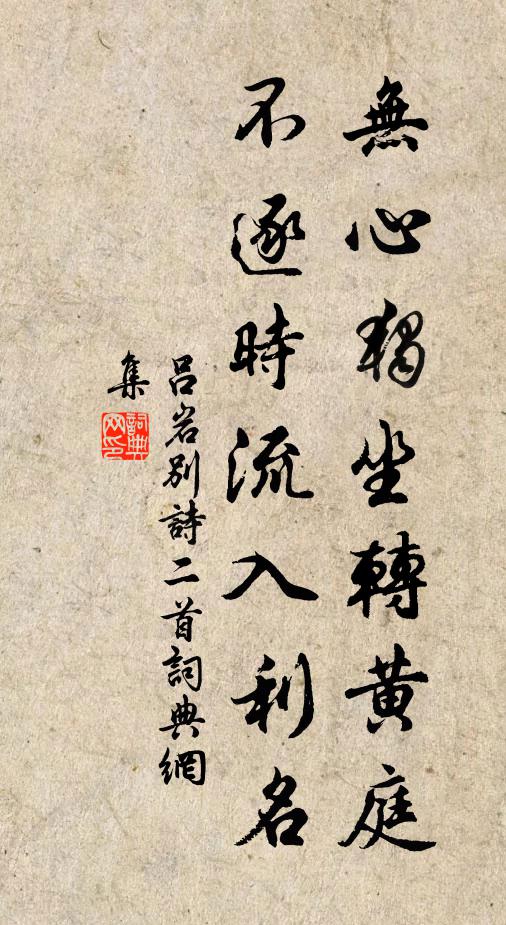 無心獨坐轉黃庭
不逐時流入利名
呂岩別詩二首詞典網
集
詞典
网印